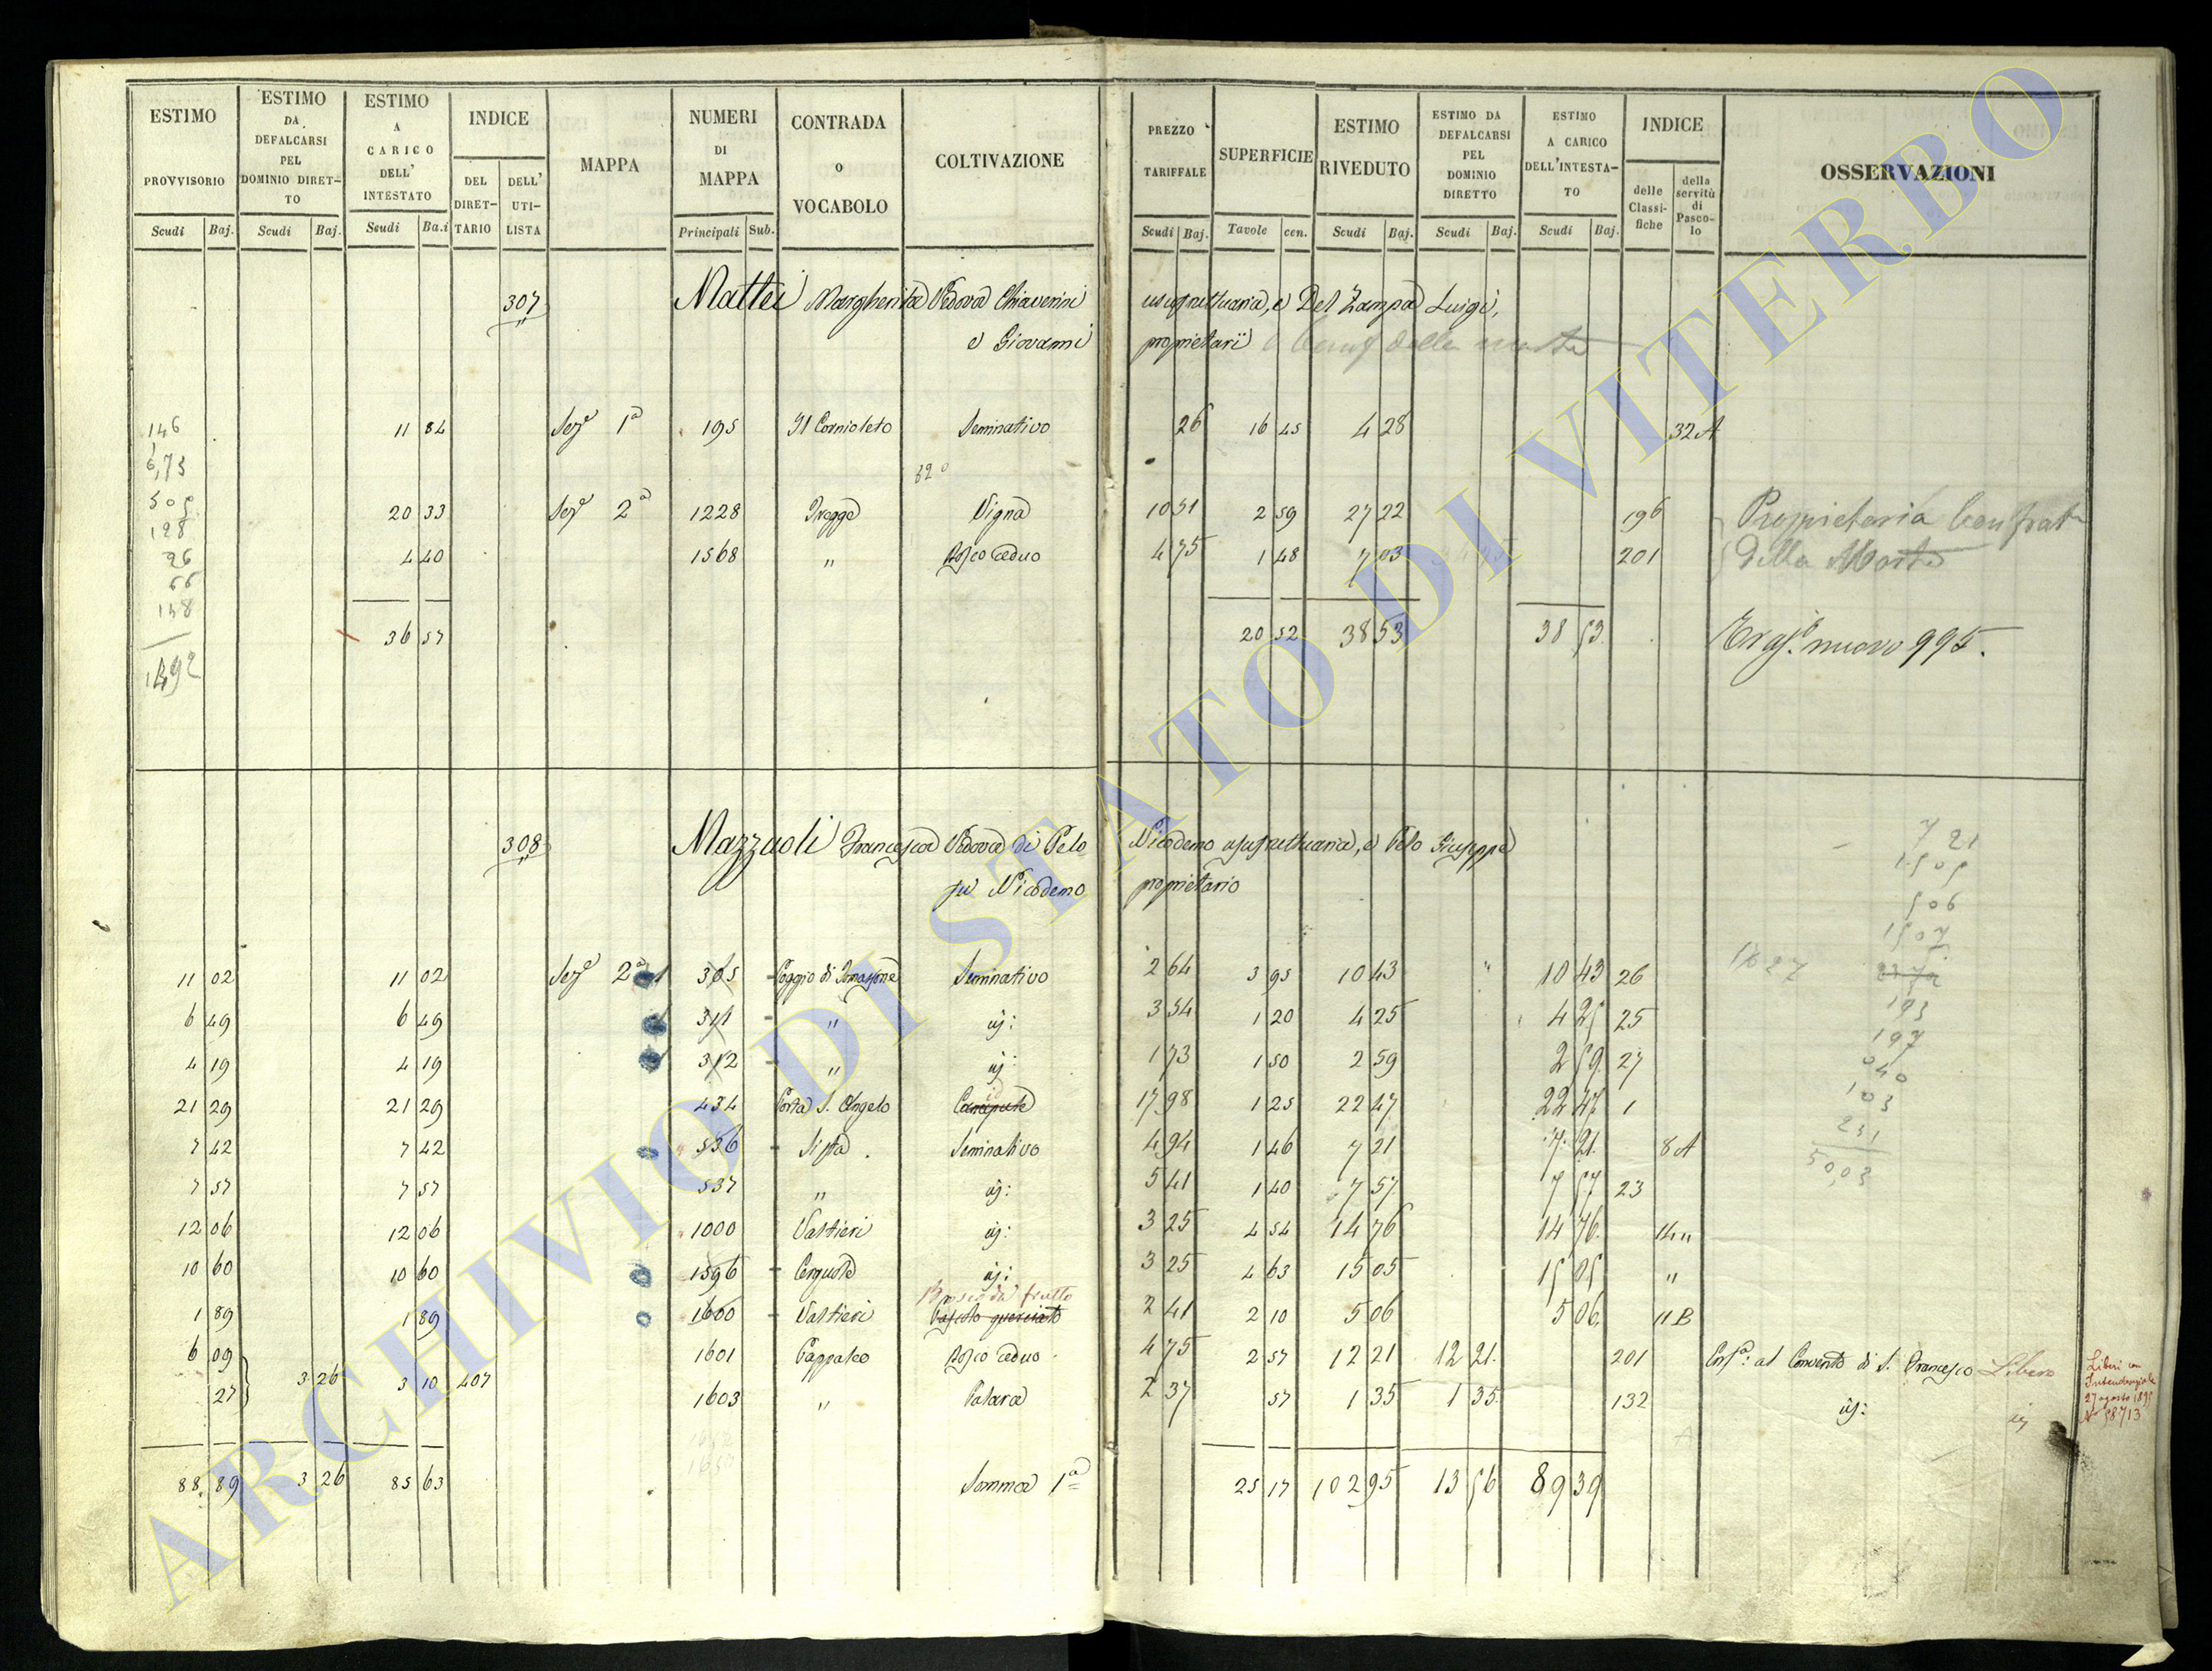 ESTIMO PROVVISORIO Scudi Baj.
ESTIMO DA DEFALCARSI PEL DOMINIO DIRET-TO Scudi Baj.
ESTIMO A CARICO DELL' INTESTATO Scudi Ba.i
INDICE DEL DIRET-TARIO DELL' UTI-LISTA
MAPPA
NUMERI DI MAPPA Principali Sub.
CONTRADA o VOCABOLO
COLTIVAZIONE
PREZZO TARIFFALE Scudi Baj.
SUPERFICIE Tavole cen.
ESTIMO RIVEDUTO Scudi Baj.
ESTIMO DA DEFALCARSI PEL DOMINIO DIRETTO Scudi Baj.
ESTIMO A CARICO DELL'INTESTA-TO Scudi Baj.
INDICE delle Classi-fiche della servitù di Pasco-lo
OSSERVAZIONI
307 Mattei Margherita Vedova Chiaverini usufruttuaria, e Del Zampa Luigi,
e Giovanni proprietarii
11 84 Sez.e 1a 195 Il Cornioleto Seminativo 26 16 45 4 28 32 A
20 33 Sez.e 2a 1228 Vigna 10 51 2 59 27 22 196 Proprietaria Confrat
4 40 1568 " Bosco ceduo 4 75 1 48 7 03 201 della Morte
36 57 20 52 38 53 38 53
nuovo 995.
146
6,73
509
128
26
66
148
1492
308 Mazzuoli Francesca Vedova di Pelo Nicodemo usufruttuaria, e Pelo Giuseppe
fu Nicodemo proprietario
11 02 11 02 Sez.e 2a 305 Poggio di Tomassone Seminativo 2 64 3 95 10 43 " 10 43 26
6 49 6 49 311 " id: 3 54 1 20 4 25 4 25 25
4 19 4 19 312 " id: 1 73 1 50 2 59 2 59 27
21 29 21 29 434 Porta S. Angelo Canapule 17 98 1 25 22 47 22 47 1
7 42 7 42 536 Seminativo 4 94 1 46 7 21 7 21 8 A
7 57 7 57 537 " id: 5 41 1 40 7 57 7 57 23
12 06 12 06 1000 Valtieri id: 3 25 4 54 14 76 14 76 14 "
10 60 10 60 1596 Cerquole id: 3 25 4 63 15 05 15 05 "
Bosco da frutto
1 89 1 89 1600 Valtieri Pascolo querciato 2 41 2 10 5 06 5 06 11 B
6 09 1601 Pappaleo Bosco ceduo 4 75 2 57 12 21 12 21 201 Corr.a: al Convento di S. Francesco Libero
27 3 26 3 10 407 1603 " 2 37 57 1 35 1 35 132 id: id
88 89 3 26 85 63 Somma 1a 25 17 102 95 13 56 89 39
7 21
1505
506
1507
1627
193
197
040
103
231
50,03
Liberi con
27 agosto
No 58713
ARCHIVIO DI STATO DI VITERBO